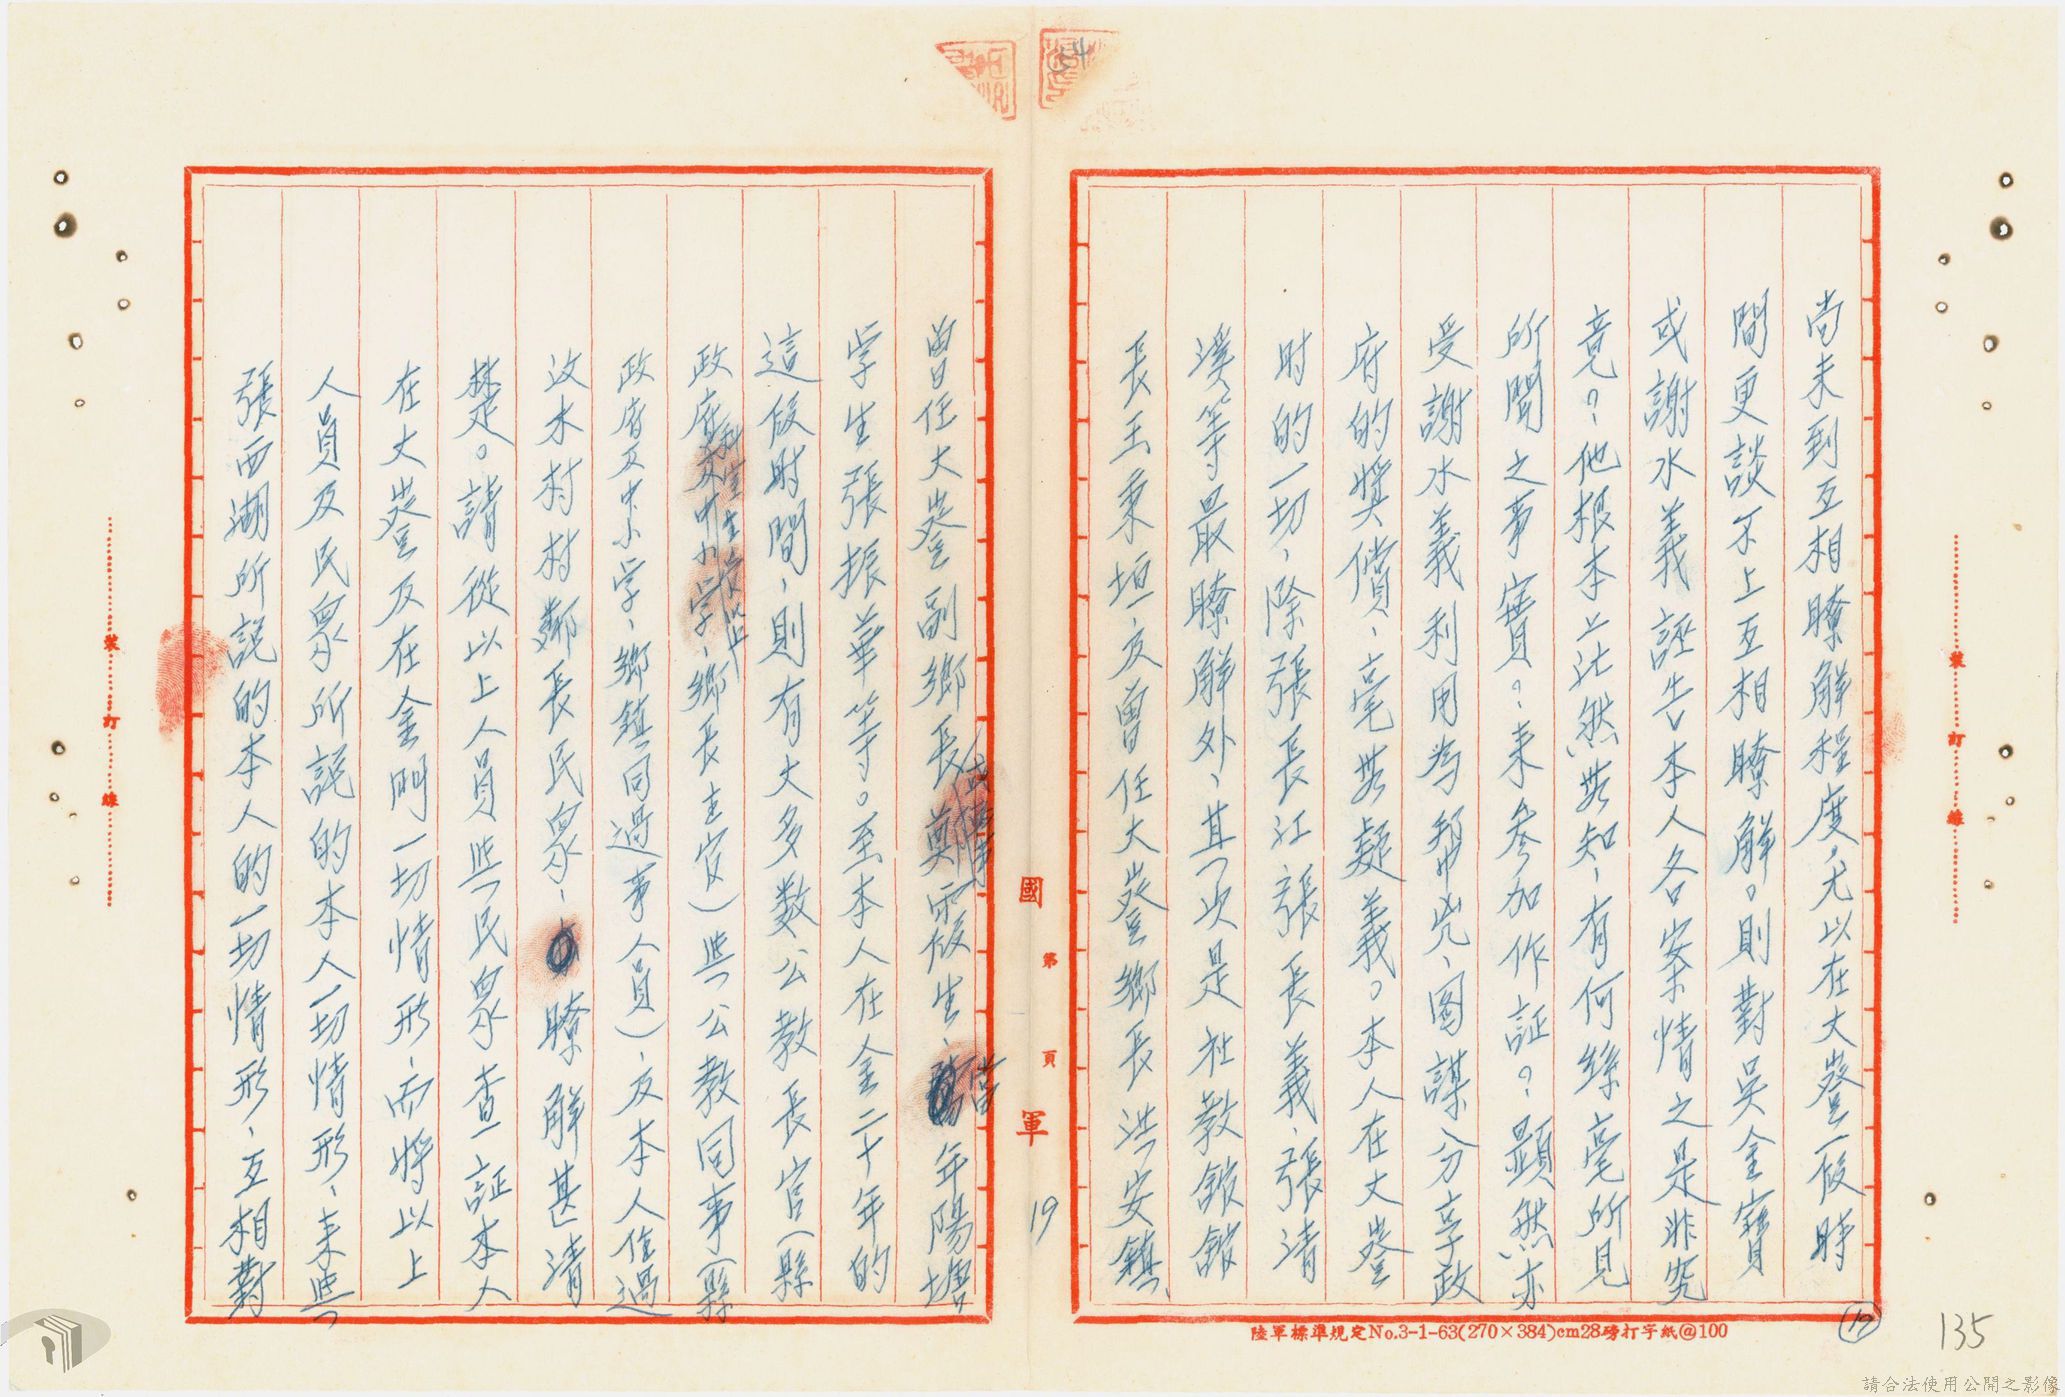 尚未到互相瞭解程度,尤以在大嶝一段時
間更談不上互相瞭解。則對吳金寶
或謝水義誣告本人各案情之是非究
竟?他根本上茫然無知、有何絲毫所見
所聞之事實?来參加作証?顯然亦
受謝水義利用為幫兇、圖謀分享政
府的獎償、毫無疑義。本人在大嶝
時的一切、除張長江張長義、張清
漢等最瞭解外、其次是社教舘舘
長王秉垣、及曾任大嶝鄉長洪安鎮、
曾任大嶝副鄉長鄭霞生、當年陽塘
学生張振華等。至本人在金二十年的
這段時間、則有大多数公教長官(縣
政府及中小学、鄉長主官)與公教同事(縣
政府及中小学、鄉鎮同過事人員)、及本人住過
汶水村村鄰長民眾、瞭解甚清
楚。請從以上人員與民眾查証本人
在大嶝及在金門一切情形、而將以上
人員及民眾所說的本人一切情形、来與
張西湖所說的本人的一切情形、互相對
國
第
頁
軍
19
54
裝
訂
線
裝
訂
線
陸軍標準規定No.3-1-63(270×384)cm28磅打字紙@100
135
請合法使用公開之影像